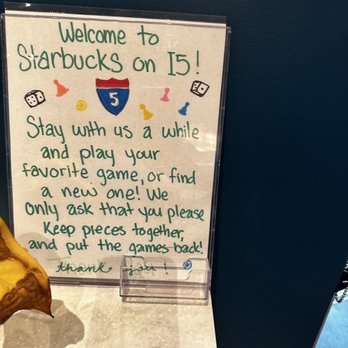 Welcome to
Starbucks on I5!
5
Stay with us a while
and play your
favorite game, or find
a new one! We
only ask that you please
keep pieces together,
and put the games back!
thank you!